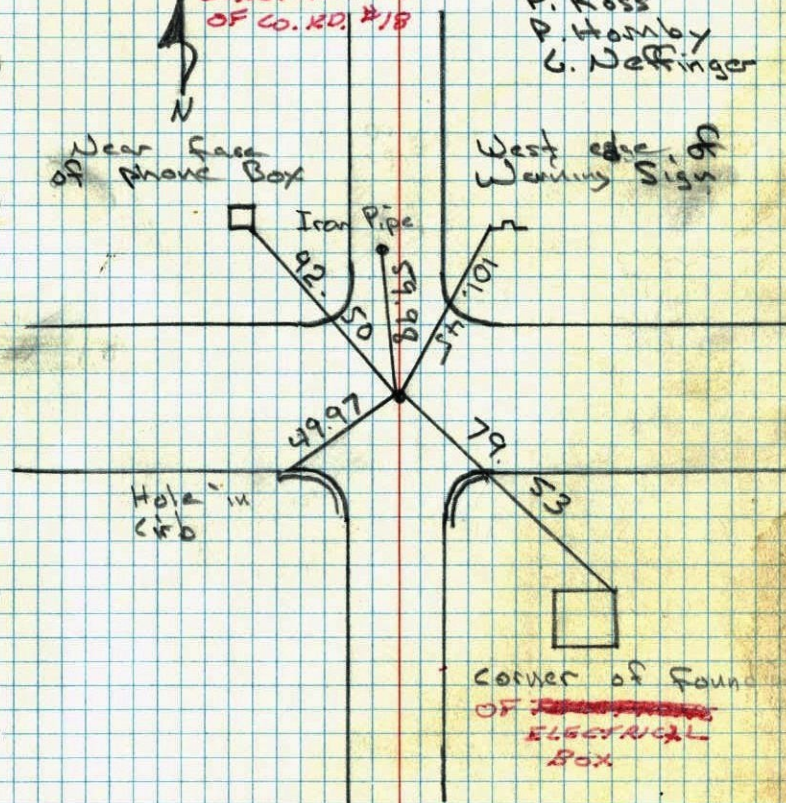 OF CO. RD. #18
P. Ross
P. Hornby
L. Neffinger
N
Near face
of phone Box
West edge of
Warning Sign
Iron Pipe
92.50
59.98
101.45
49.97
79.53
Hole in
Curb
Corner of Foun
OF
ELECTRICAL
BOX